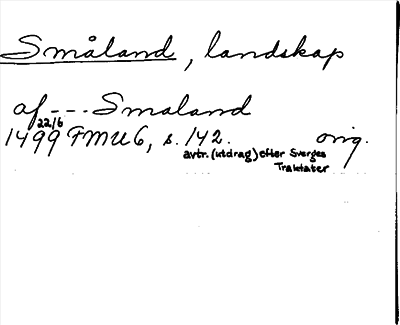 Småland, landskap
af --- Smaland
22/6
1499 FMU 6, s. 142. orig.
avtr. (utdrag) efter Sverges
Traktater